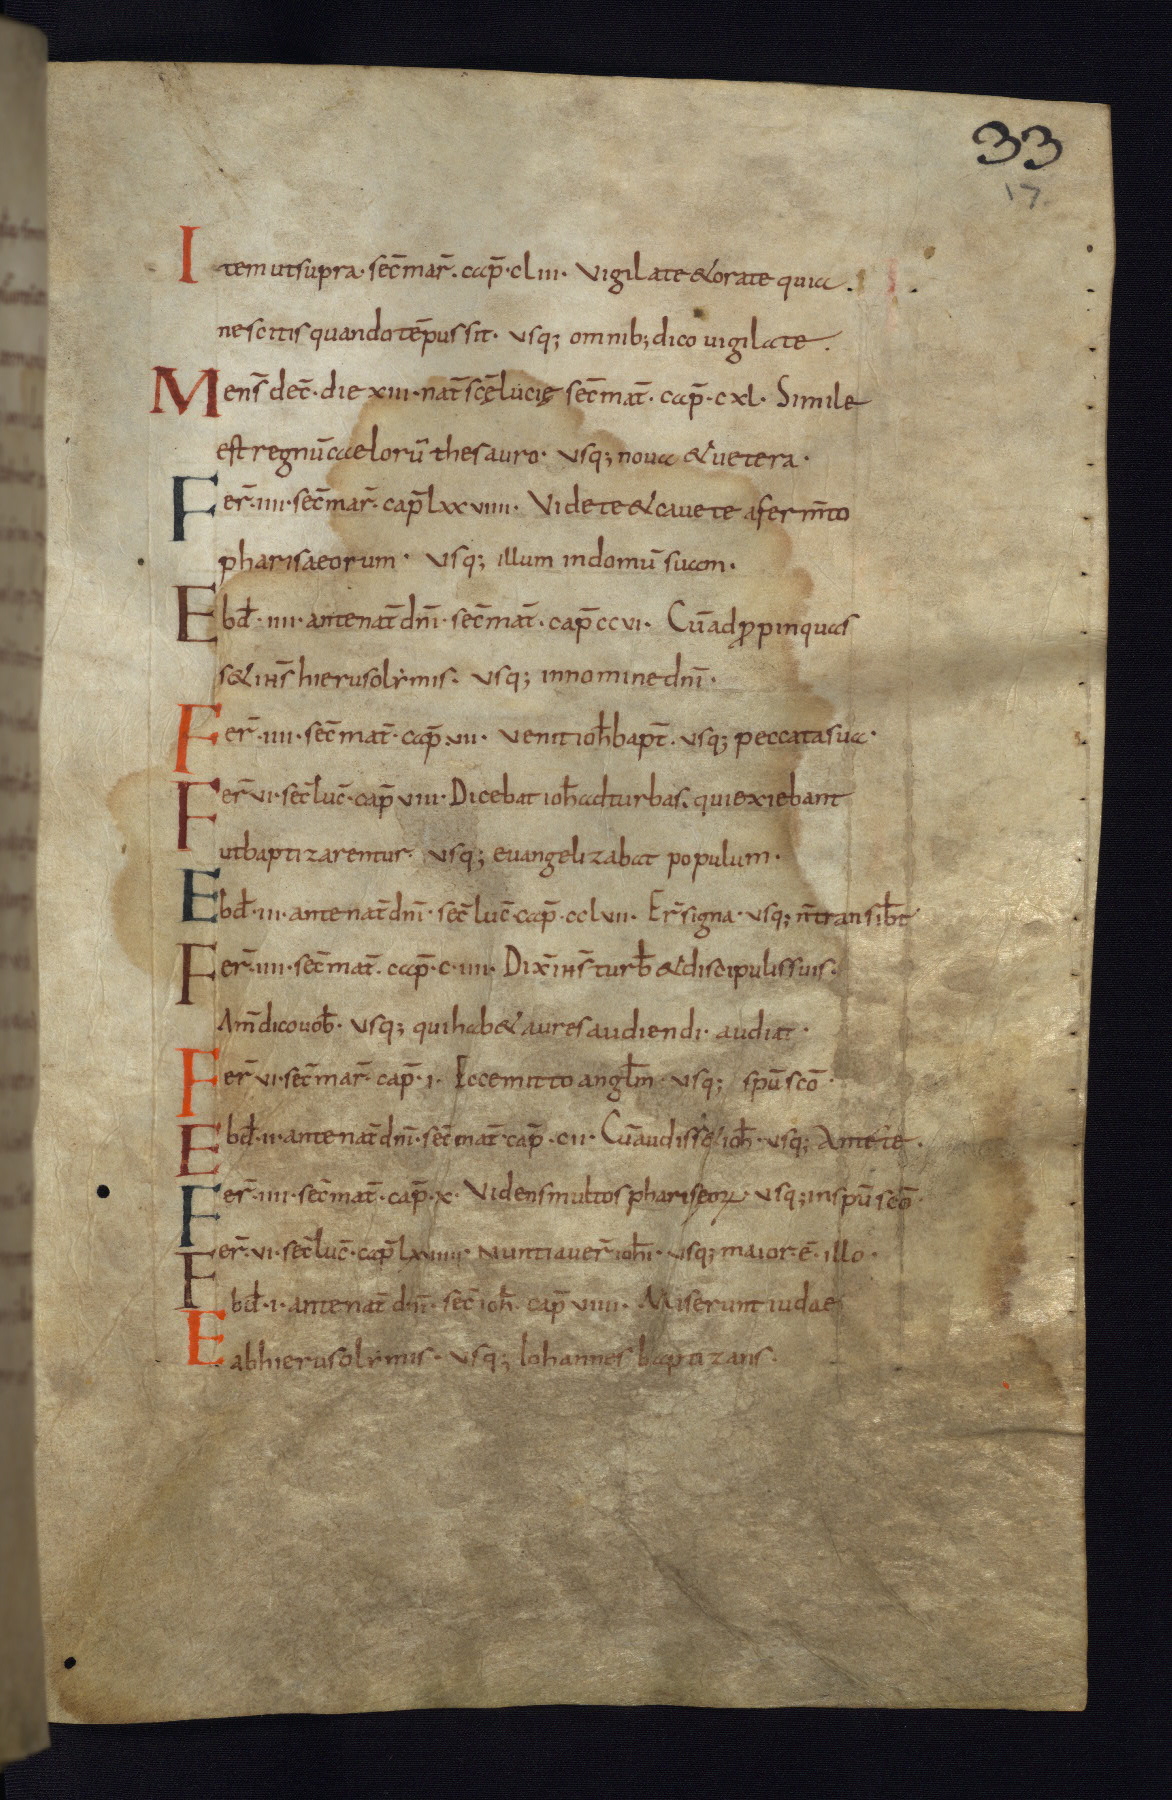 33
17
Item ut supra · sec̄ mar̄ · cap̄ · cliii · Vigilate & orate quia ·
nescitis quando tēpus sit · usq; omnib; dico uigilate ·
Mens̄ dec̄ · die xiii · nat̄ sc̄ę lucię sec̄ mat̄ · cap̄ · cxl · Simile
est regnū caelorū thesauro · usq; noua & uetera ·
Fer̄ · iiii · sec̄ mar̄ · cap̄ lxxviiii · Videte & cauete aferm̄to
pharisaeorum · usq; illum in domū suam ·
Ebd̄ · iiii · ante nat̄ dn̄i · sec̄ mat̄ · cap̄ ccvi · Cū adpropinquas
s& ih̄s hierusolimis · usq; in nomine dn̄i ·
Fer̄ · iiii · sec̄ mat̄ · cap̄ · vii · venit ioh̄ bapt̄ · usq; peccata sua ·
Fer̄ vi · sec̄ luc̄ · cap̄ viii · Dicebat ioh̄ ad turbas · qui exiebant
ut baptizarentur · usq; euangelizabat populum ·
Ebd̄ · iii · ante nat̄ dn̄i · sec̄ luc̄ · cap̄ · cclvii · Er̄ signa · usq; n̄ transib̄t
Fer̄ · iiii · sec̄ mat̄ · cap̄ · c · iiii · Dix̄ ih̄s turb̄ & discipulis suis ·
Am̄ dico uob̄ · usq; qui hab& aures audiendi · audiat ·
Fer̄ vi · sec̄ mar̄ · cap̄ · i · Ecce mitto angl̄m · usq; spū sc̄o ·
Ebd̄ · ii · ante nat̄ dn̄i · sec̄ mat̄ cap̄ · cii · Cū audiss& ioh̄ · usq; Ante te ·
Fer̄ · iiii · sec̄ mat̄ · cap̄ · x · Videns multos phariseoꝝ · usq; in spū sc̄o ·
Fer̄ · vi · sec̄ luc̄ · cap̄ lxviiii · Nuntiauer̄ ioh̄i · usq; maior ē · illo ·
Ebd̄ · i · ante nat̄ dn̄i · sec̄ ioh̄ · cap̄ viiii · Miserunt iudae
ab hierusolimis · usq; Iohannes baptizans ·